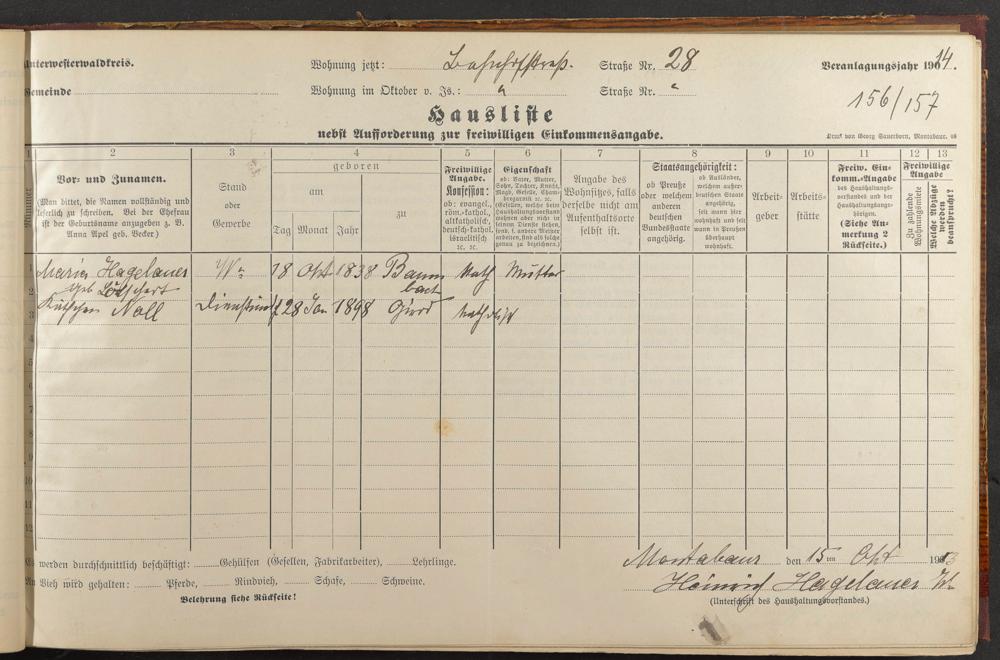 Unterwesterwaldkreis.
Wohnung jetzt: Bahnhofstraß. Straße Nr. 28
Veranlagungsjahr 1914.
Gemeinde
Wohnung im Oktober v. Js.: " Straße Nr. "
156/157
Hausliste
nebst Aufforderung zur freiwilligen Einkommensangabe.
Druck von Georg Sauerborn, Montabaur.
1 2 3 4 5 6 7 8 9 10 11 12 13
Nummer
Vor- und Zunamen.
(Man bittet, die Namen vollständig und
leserlich zu schreiben. Bei der Ehefrau
ist der Geburtsname anzugeben z. B.
Anna Apel geb. Becker.)
Stand
oder
Gewerbe
geboren
am
Tag Monat Jahr
zu
Freiwillige
Angabe.
Konfession:
ob: evangel.,
röm.-kathol.,
altkatholisch,
deutsch-kathol.
israelitisch
ec. ec.
Eigenschaft
ob: Vater, Mutter,
Sohn, Tochter, Knecht,
Magd, Geselle, Cham-
bregarnist ec. ec.
(Gesellen, welche beim
Haushaltungsvorstand
wohnen aber nicht in
seinem Dienste stehen,
sond. f. andere Meister
arbeiten, sind als solche
genau zu bezeichnen.)
Angabe des
Wohnsitzes, falls
derselbe nicht am
Aufenthaltsorte
selbst ist.
Staatsangehörigkeit:
ob Preuße
oder welchem
anderen
deutschen
Bundesstaate
angehörig.
ob Ausländer,
welchem außer-
deutschen Staate
angehörig,
seit wann hier
wohnhaft und seit
wann in Preußen
überhaupt
wohnhaft.
Arbeit-
geber
Arbeits-
stätte
Freiw. Ein-
komm.-Angabe
des Haushaltungs-
vorstandes und der
Haushaltungsange-
hörigen.
(Siehe An-
merkung 2
Rückseite.)
Freiwillige
Angabe
Zu zahlende
Wohnungsmiete
Welche Abzüge
werden
beansprucht?
1 Maria Hagelauer Ww 18 Okt 1838 Baum Kath Mutter
2 geb. Lötschert bach
3 Käthchen Noll 28 Jan 1898 Girod katholisch
4
5
6
7
8
9
10
11
12
Es werden durchschnittlich beschäftigt: Gehülfen (Gesellen, Fabrikarbeiter), Lehrlinge.
An Vieh wird gehalten: Pferde, Rindvieh, Schafe, Schweine.
Belehrung siehe Rückseite!
Montabaur den 15ten Okt 1913
Heinrich Hagelauer
(Unterschrift des Haushaltungsvorstandes.)